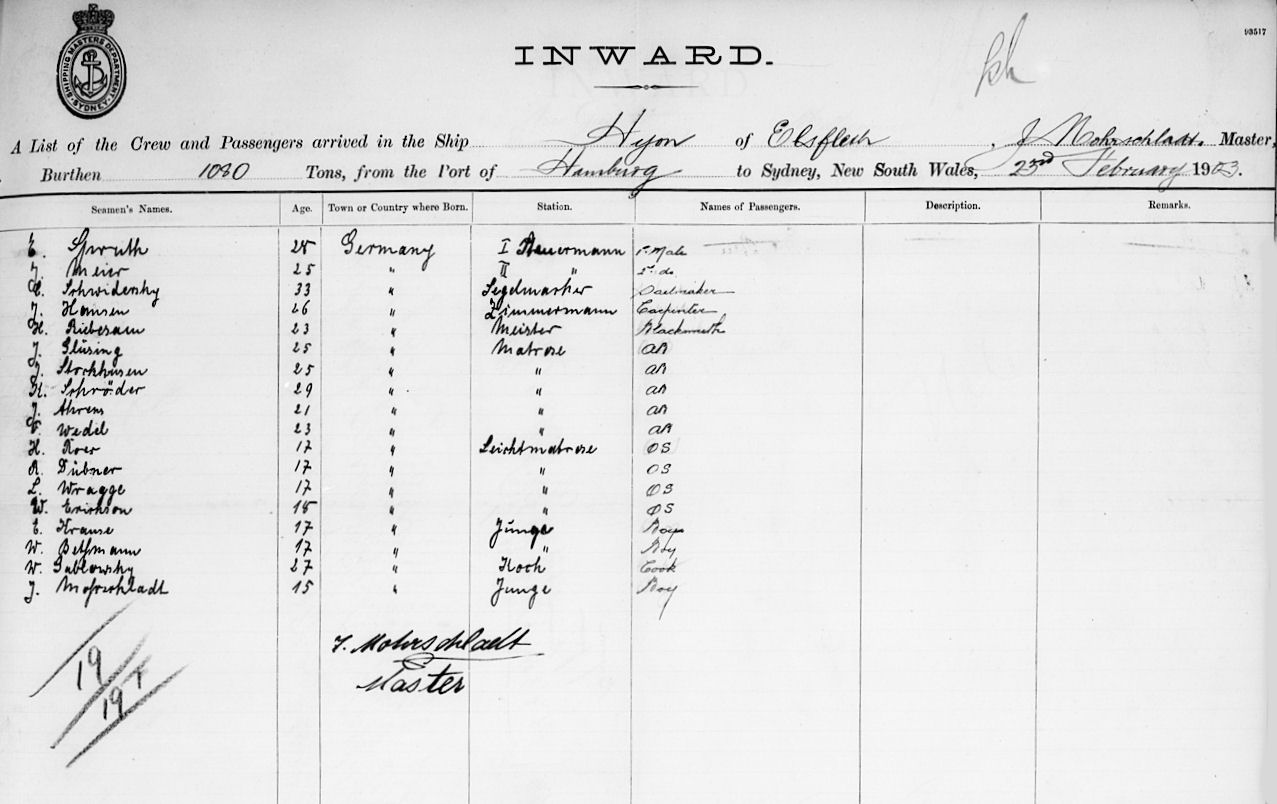 93517
SHIPPING MASTERS DEPARTMENT SYDNEY
INWARD.
A List of the Crew and Passengers arrived in the Ship Hyon of Elsfleth, J Mohrschladt. Master,
Burthen 1080 Tons, from the Port of Hamburg to Sydney, New South Wales, 23rd February 1903.
Seamen's Names. Age. Town or Country where Born. Station. Names of Passengers. Description. Remarks.
E. Spruth 28 Germany I Steuermann 1. Mate
J. Meier 25 " II " 2. do
Schwidersky 33 " Segelmacher Sailmaker
J. Hansen 26 " Zimmermann Carpenter
H. Riebesam 23 " Meister Blacksmith
J. Glüsing 25 " Matrose AB
J. Storkhusen 25 " " AB
H. Schröder 29 " " AB
J. Ahrens 21 " " AB
Wedel 23 " " AB
H. 17 " Leichtmatrose OS
R. Dübner 17 " " OS
L. Wragge 17 " " OS
W. Erikson 18 " " OS
E. Krause 17 " Junge Boy
W. Bethmann 17 " " Boy
W. Gablowsky 27 " Koch Cook
J. Mohrschladt 15 " Junge Boy
J. Mohrschladt
Master
19
19